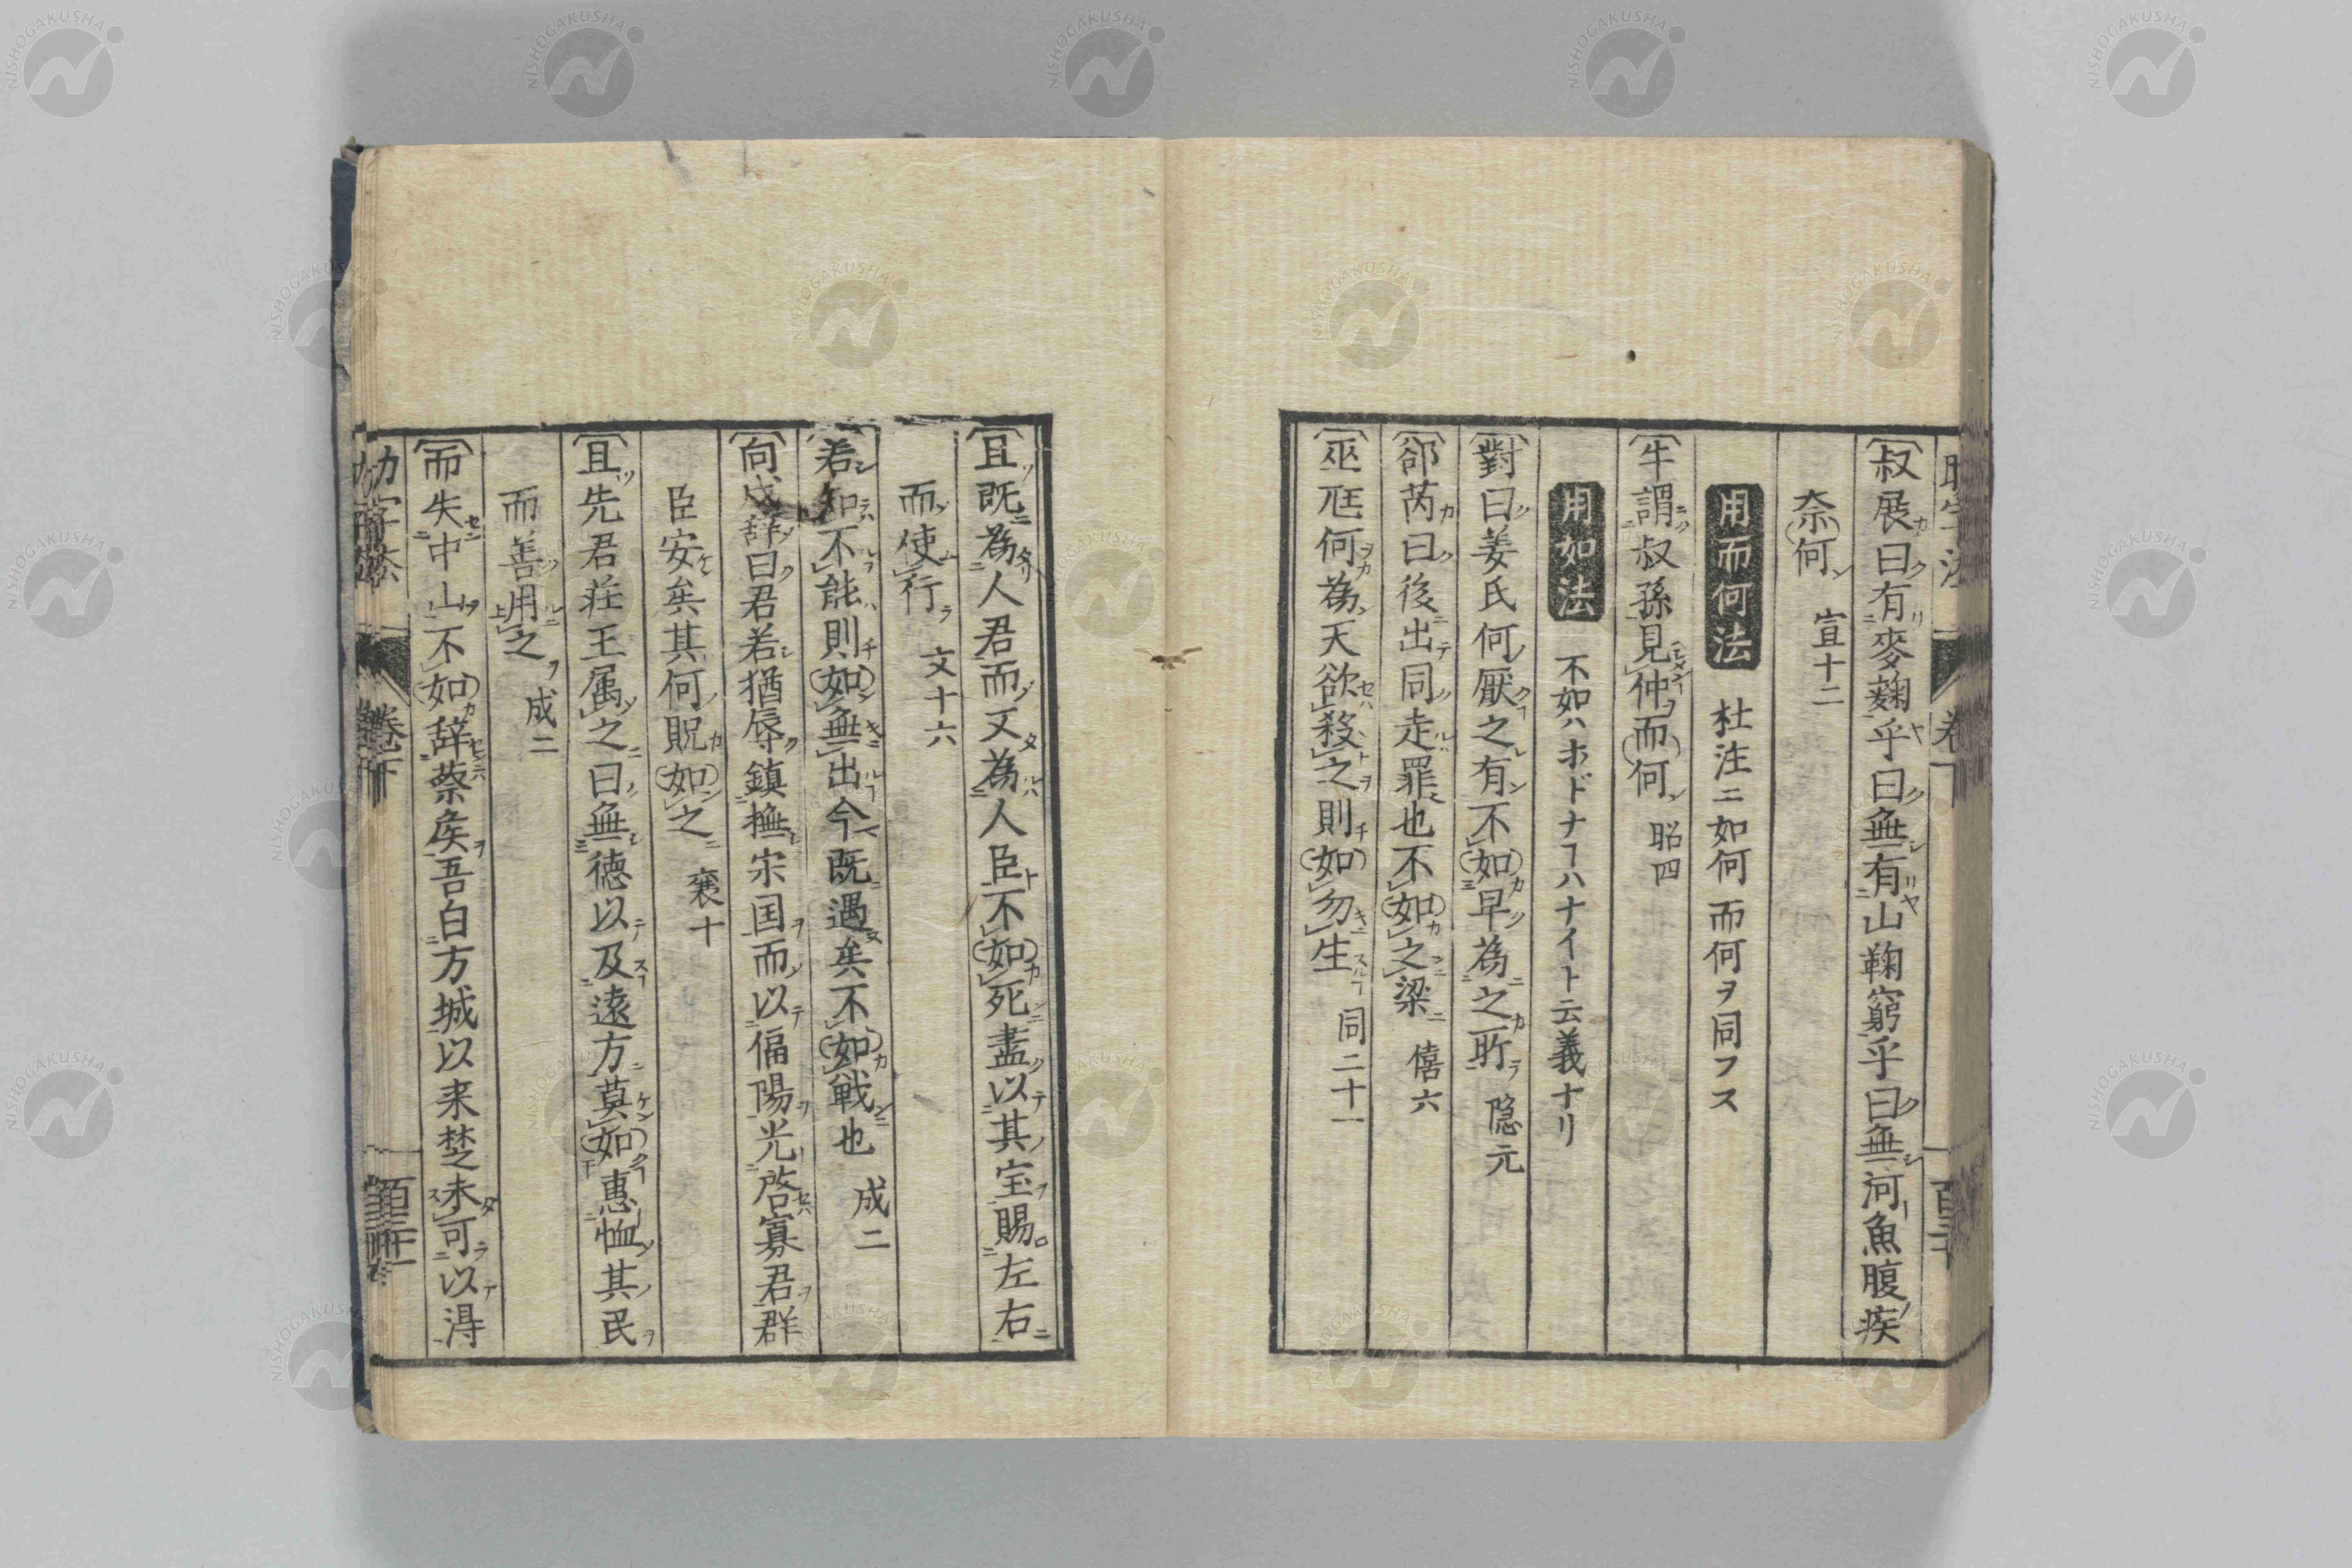 叔展曰有麥麹乎曰無有山鞠窮乎曰無河魚腹疾
奈何 宣十二
用而何法 杜注ニ如何而何ヲ同フス
牛謂叔孫見仲而何 昭四
用如法 不如ハホドナヿハナイト云義ナリ
對曰姜氏何厭之有不如早為之所 隠元
郤芮曰後出同走罪也不如之梁 僖六
巫尫何為天欲殺之則如勿生 同二十一
且既為人君而又為人臣不如死盡以其宝賜左右
而使行 文十六
若知不能則如無出今既遇矣不如戦也 成二
向戌辞曰君若猶辱鎮撫宋国而以偪陽光啓寡君群
臣安矣其何貺如之 襄十
且先君荘王属之曰無徳以及遠方莫如惠恤其民
而善用之 成二
而失中山不如辞蔡矦吾自方城以来楚未可以淂
助字法 卷下
NISHOGAKUSHA